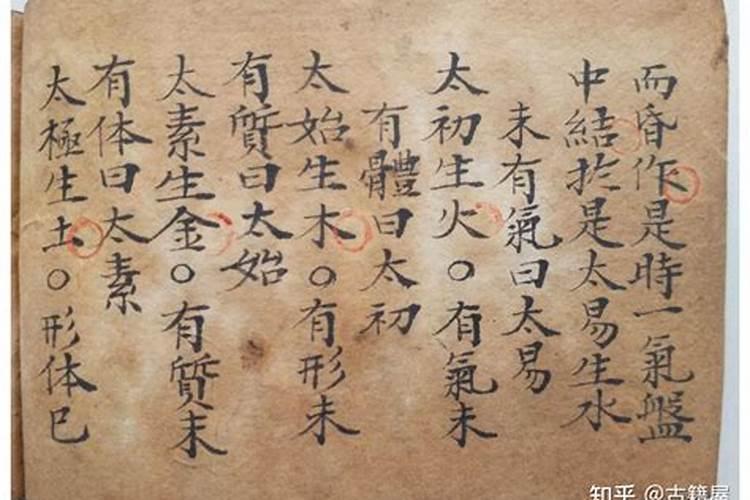 而昏作是時一氣盤
中結扵是太易生水
未有氣曰太易
太初生火○有氣未
有體曰太初
太始生木○有形未
有質曰太始
太素生金○有質未
有体曰太素
太極生土○形体巳
知乎 @古籍屋